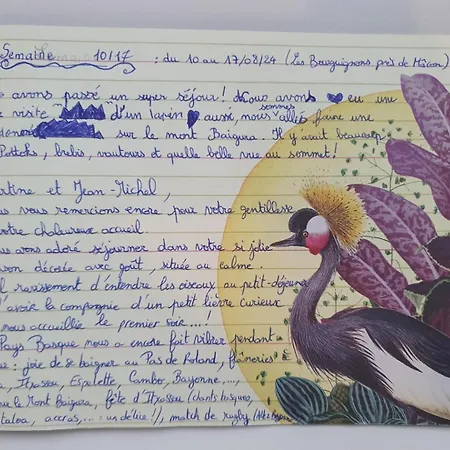 Semaine 10/17 : du 10 au 17/08/24 (Les Bourguignons près de Mâcon)
avons passé un super séjour ! Nous avons eu une
visite d'un lapin aussi, nous sommes allés faire une
sur le mont Baigura. Il y avait beaucoup
Pottoks, brebis, vautours et quelle belle vue au sommet !
et Jean-Michel,
vous remercions encore pour votre gentillesse
votre chaleureux accueil.
avons adoré séjourner dans votre si jolie
décorée avec goût, située au calme.
ravissement d'entendre les oiseaux au petit-déjeuner
d'avoir la compagnie d'un petit lièvre curieux
nous accueillie le premier soir...!
Pays Basque nous a encore fait vibrer pendant
: joie de se baigner au Pas de Roland, flâneries à
Itxassou, Espelette, Cambo, Bayonne,...,
le Mont Baigura, fête d'Itxassou (chants basques,
taloa, accras,... : un délice !), match de rugby